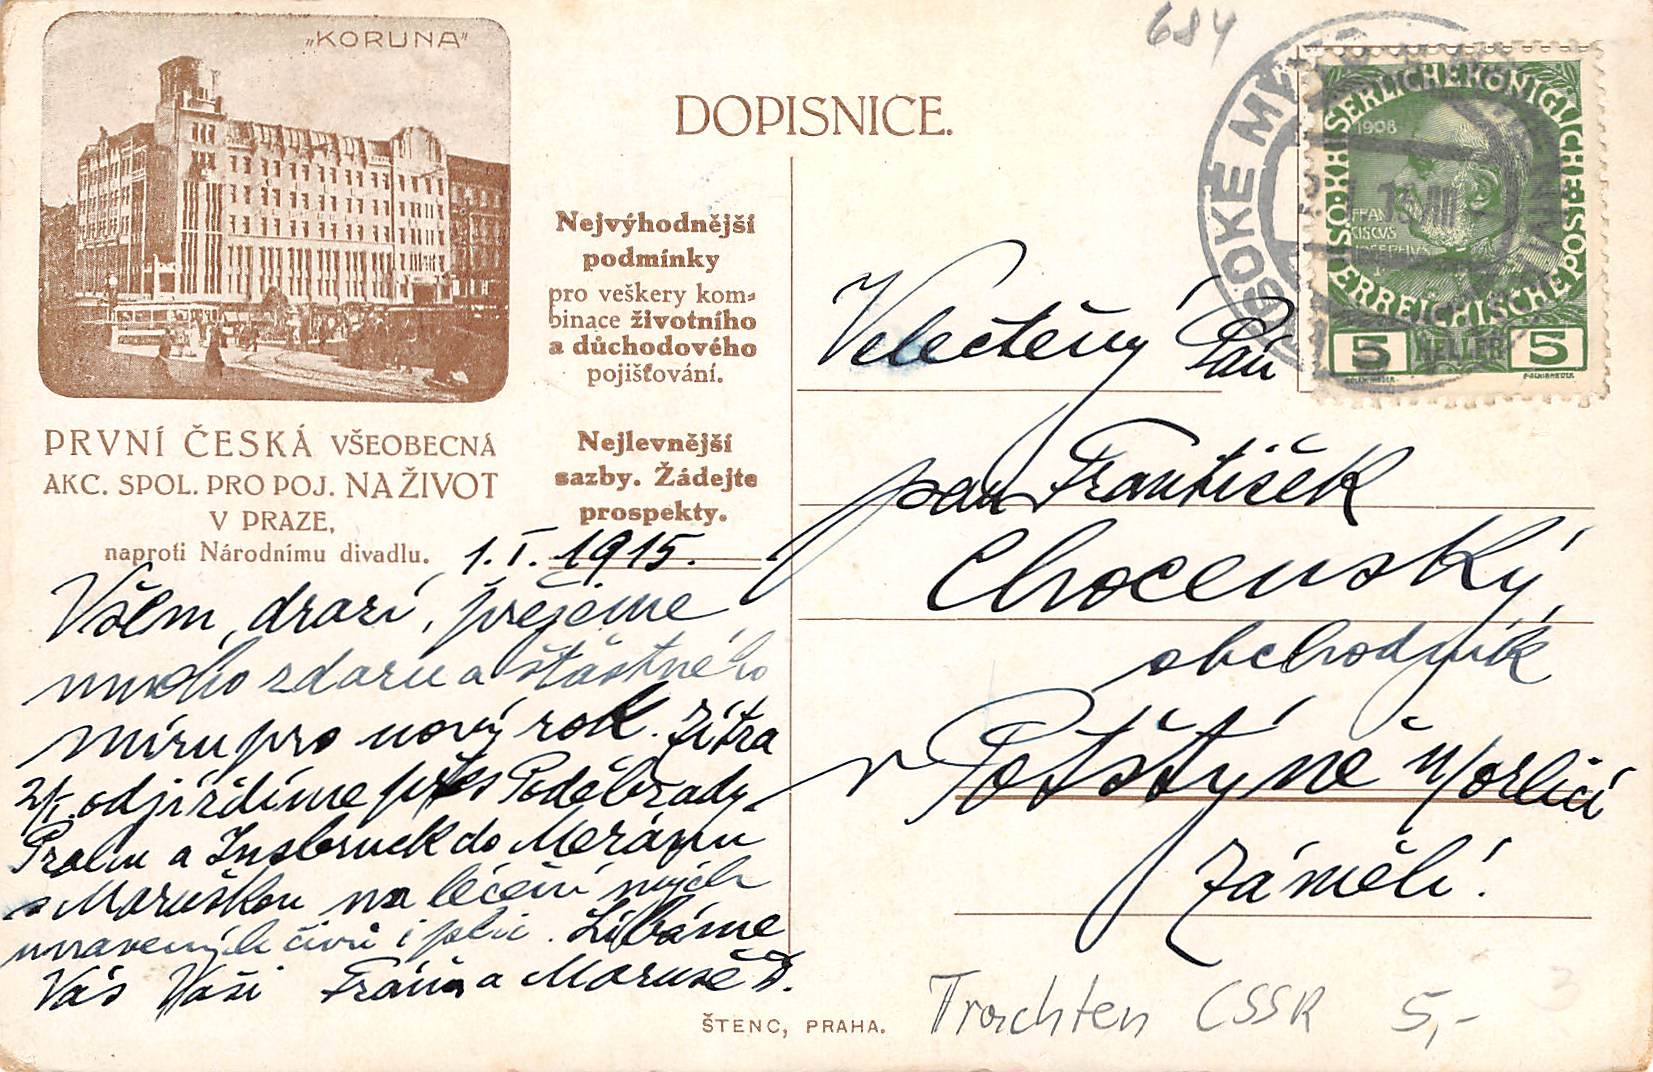 684
"KORUNA"
DOPISNICE.
Nejvýhodnější
podmínky
pro veškery kom=
binace životního
a důchodového
pojišťování.
Nejlevnější
sazby. Žádejte
prospekty.
PRVNÍ ČESKÁ VŠEOBECNÁ
AKC. SPOL. PRO POJ. NA ŽIVOT
V PRAZE,
naproti Národnímu divadlu.
1. I. 1915.
Všem, drazí, přejeme
mnoho zdaru a šťastného
míru pro nový rok. Zítra
2/I. odjíždíme přes Poděbrady,
Prahu a Insbruck do Meránu
s Maruškou na léčení mých
unavených čivů i plic. Líbáme
Vás Vaši Fráňa a Maruše D.
Velectěný Pán
pan František
Chocenský,
obchodník
v Potštýně n/Orlicí
Zámělí.
SOKE MY
KAISERLICHE KÖNIGLICHE
ÖSTERREICHISCHE POST
1908
FRAN
CISCUS
IOSEPHUS
5 HELLER 5
ŠTENC, PRAHA.
Trachten CSSR 5,-
3